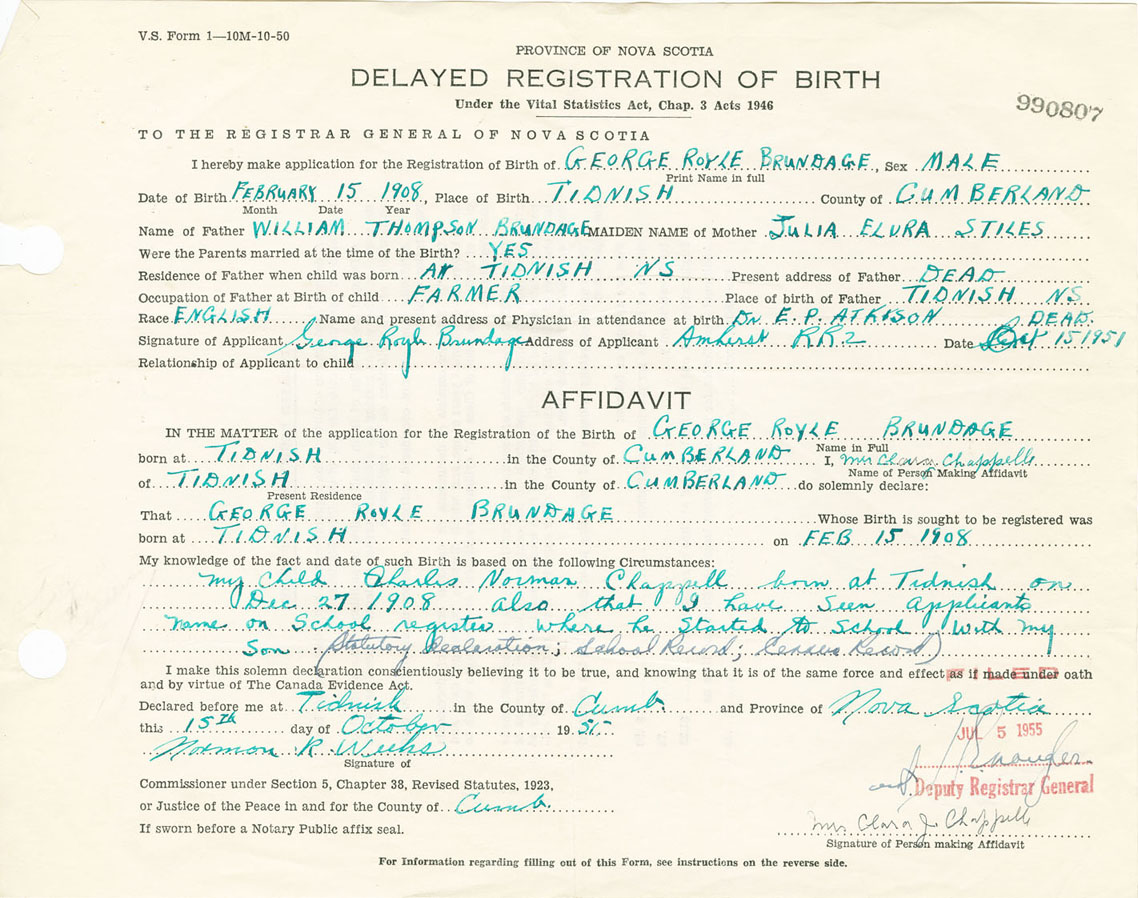 V.S. Form 1—10M-10-50
PROVINCE OF NOVA SCOTIA
DELAYED REGISTRATION OF BIRTH
Under the Vital Statistics Act, Chap. 3 Acts 1946
990807
TO THE REGISTRAR GENERAL OF NOVA SCOTIA
I hereby make application for the Registration of Birth of GEORGE ROYLE BRUNDAGE, Sex MALE
Print Name in full
Date of Birth FEBRUARY 15 1908, Place of Birth TIDNISH County of CUMBERLAND
Month Date Year
Name of Father WILLIAM THOMPSON BRUNDAGE MAIDEN NAME of Mother JULIA ELVRA STILES
Were the Parents married at the time of the Birth? YES
Residence of Father when child was born At TIDNISH NS Present address of Father DEAD
Occupation of Father at Birth of child FARMER Place of birth of Father TIDNISH NS
Race ENGLISH Name and present address of Physician in attendance at birth Dr E. P. ATKISON DEAD.
Signature of Applicant George Royle Brundage Address of Applicant Amherst RR2 Date Oct 15 1951
Relationship of Applicant to child
AFFIDAVIT
IN THE MATTER of the application for the Registration of the Birth of GEORGE ROYLE BRUNDAGE
Name in Full
born at TIDNISH in the County of CUMBERLAND I, Mrs Clara Chappelle
Name of Person Making Affidavit
of TIDNISH in the County of CUMBERLAND do solemnly declare:
Present Residence
That GEORGE ROYLE BRUNDAGE Whose Birth is sought to be registered was
born at TIDNISH on FEB 15 1908
My knowledge of the fact and date of such Birth is based on the following Circumstances:
My Child Charles Norman Chappell born at Tidnish on
Dec 27 1908 also that I have seen applicants
name on School register where he started to School with my
Son (Statutory Declaration; School Record; Census Record)
I make this solemn declaration conscientiously believing it to be true, and knowing that it is of the same force and effect as if made under oath
and by virtue of The Canada Evidence Act.
FILED
Declared before me at Tidnish in the County of Cumb. and Province of Nova Scotia
this 15th day of October 1951
JUL 5 1955
Norman R Weeks
Signature of
Commissioner under Section 5, Chapter 38, Revised Statutes, 1923,
Deputy Registrar General
or Justice of the Peace in and for the County of Cumb.
Mrs Clara J. Chappelle
If sworn before a Notary Public affix seal.
Signature of Person making Affidavit
For Information regarding filling out of this Form, see instructions on the reverse side.